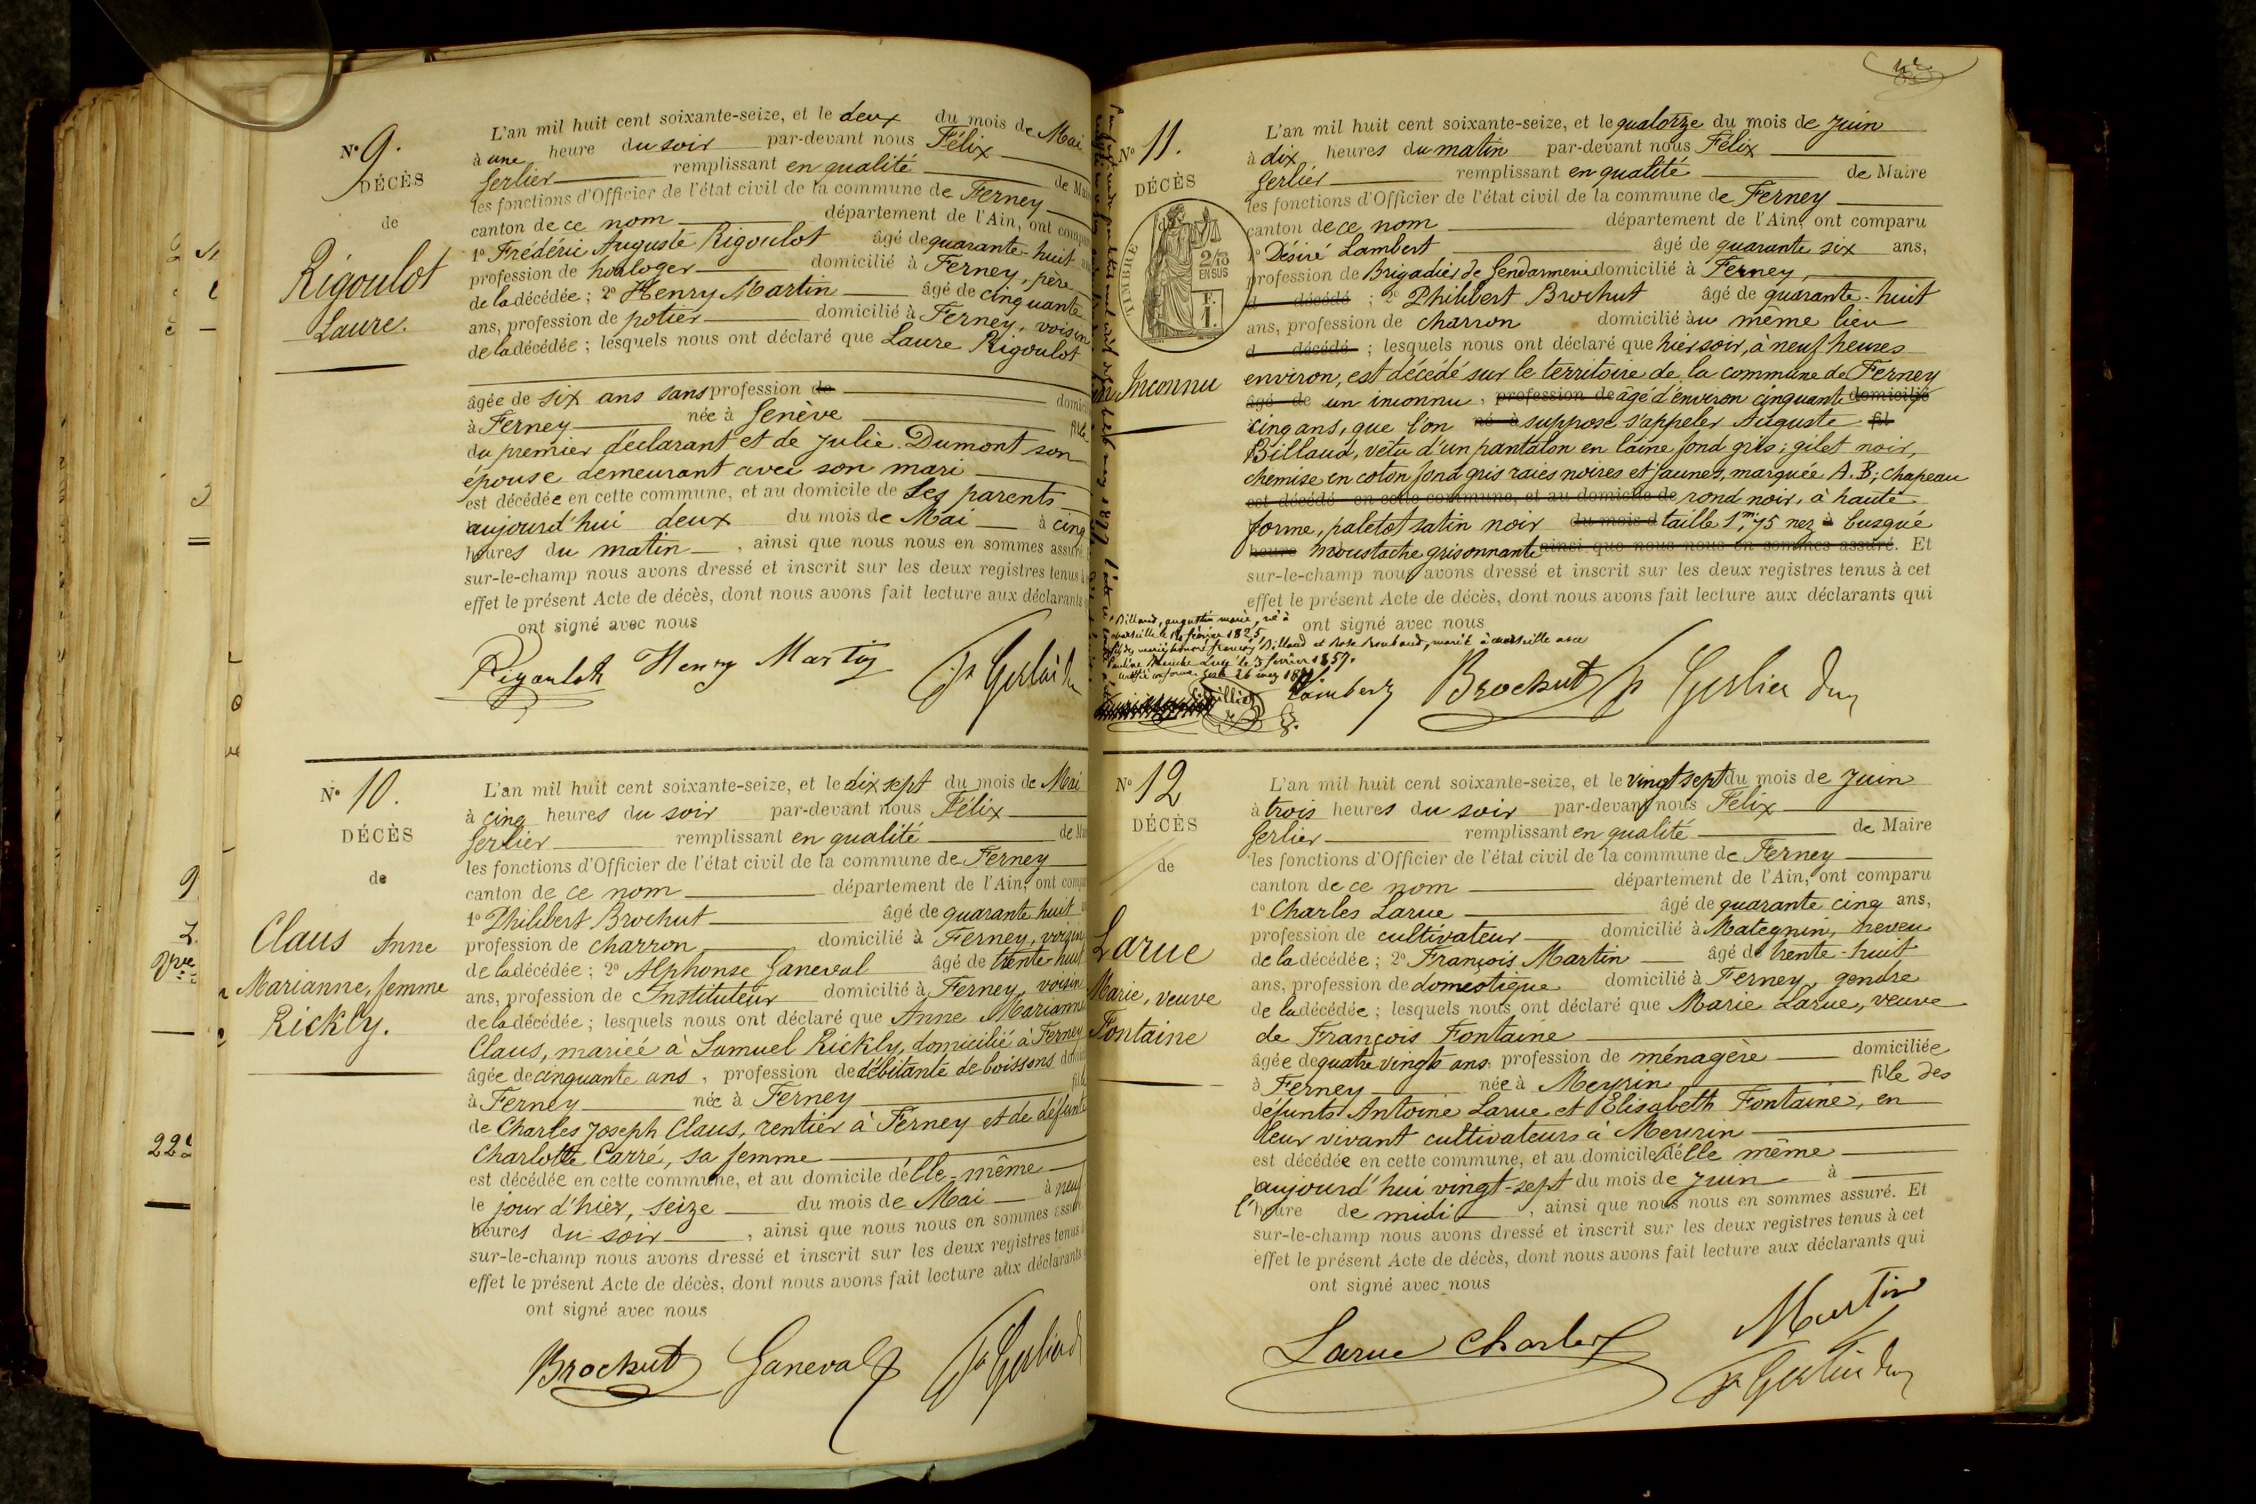 N° 9.
DÉCÈS
de
Rigoulot
Laure.
L'an mil huit cent soixante-seize, et le deux du mois de Mai
à une heure du soir par-devant nous Félix
Gerlier remplissant en qualité de Mai
les fonctions d'Officier de l'état civil de la commune de Ferney
canton de ce nom département de l'Ain, ont compa
1° Frédéric Auguste Rigoulot âgé de quarante-huit
profession de horloger domicilié à Ferney, père
de la décédée ; 2° Henry Martin âgé de cinquante
ans, profession de potier domicilié à Ferney, voisin
de la décédée ; lesquels nous ont déclaré que Laure Rigoulot
âgée de six ans sans profession de domici
à Ferney née à Genève fille
du premier déclarant et de Julie Dumont son
épouse demeurant avec son mari
est décédée en cette commune, et au domicile de ses parents
aujourd'hui deux du mois de Mai à cinq
heures du matin , ainsi que nous nous en sommes assuré
sur-le-champ nous avons dressé et inscrit sur les deux registres tenus à
effet le présent Acte de décès, dont nous avons fait lecture aux déclarants
ont signé avec nous
Rigoulot Henry Martin
N° 10.
DÉCÈS
de
Claus Anne
Marianne, femme
Rickly.
L'an mil huit cent soixante-seize, et le dix sept du mois de Mai
à cinq heures du soir par-devant nous Félix
Gerlier remplissant en qualité de Mai
les fonctions d'Officier de l'état civil de la commune de Ferney
canton de ce nom département de l'Ain, ont compa
1° Philibert Brochut âgé de quarante huit
profession de charron domicilié à Ferney, voisin
de la décédée ; 2° Alphonse Ganeval âgé de trente huit
ans, profession de Instituteur domicilié à Ferney, voisin
de la décédée ; lesquels nous ont déclaré que Anne Marianne
Claus, mariée à Samuel Rickly, domicilié à Ferney
âgée de cinquante ans , profession de débitante de boissons domici
à Ferney née à Ferney fille
de Charles Joseph Claus, rentier à Ferney et de défunte
Charlotte Carré, sa femme
est décédée en cette commune, et au domicile d'elle-même
le jour d'hier, seize du mois de Mai à neuf
heures du soir , ainsi que nous nous en sommes assuré
sur-le-champ nous avons dressé et inscrit sur les deux registres tenus à
effet le présent Acte de décès, dont nous avons fait lecture aux déclarants
ont signé avec nous
Brochut Ganeval
N° 11.
DÉCÈS
TIMBRE
2/10
EN SUS
F.
I.
Inconnu
L'an mil huit cent soixante-seize, et le quatorze du mois de Juin
à dix heures du matin par-devant nous Félix
Gerlier remplissant en qualité de Maire
les fonctions d'Officier de l'état civil de la commune de Ferney
canton de ce nom département de l'Ain, ont comparu
1° Désiré Lambert âgé de quarante six ans,
profession de Brigadier de Gendarmerie domicilié à Ferney,
d décédé ; 2° Philibert Brochut âgé de quarante-huit
ans, profession de charron domicilié au même lieu
d décédé ; lesquels nous ont déclaré que hier soir, à neuf heures
environ, est décédé sur le territoire de la commune de Ferney
âgé de un inconnu, profession de âgé d'environ cinquante domicilié
cinq ans, que l'on né à suppose s'appeler Auguste fil
Billaud, vêtu d'un pantalon en laine fond gris ; gilet noir,
chemise en coton fond gris raies noires et jaunes, marquée A.B ; chapeau
est décédé en cette commune, et au domicile de rond noir, à haute
forme, paletot satin noir du mois d taille 1m,75 nez à busqué
heure moustache grisonnante ainsi que nous nous en sommes assuré. Et
sur-le-champ nous avons dressé et inscrit sur les deux registres tenus à cet
effet le présent Acte de décès, dont nous avons fait lecture aux déclarants qui
ont signé avec nous
Billaud, augustin marie, né à
marseille le 14 février 1825
françois Billaud et Rose Roubaud, marié à marseille avec
le 3 février 1857.
Lambert Brochut Gerlier
N° 12
DÉCÈS
de
Larue
Marie, veuve
Fontaine
L'an mil huit cent soixante-seize, et le vingt sept du mois de Juin
à trois heures du soir par-devant nous Félix
Gerlier remplissant en qualité de Maire
les fonctions d'Officier de l'état civil de la commune de Ferney
canton de ce nom département de l'Ain, ont comparu
1° Charles Larue âgé de quarante cinq ans,
profession de cultivateur domicilié à Mategnin, neveu
de la décédée ; 2° François Martin âgé de trente-huit
ans, profession de domestique domicilié à Ferney, gendre
de la décédée ; lesquels nous ont déclaré que Marie Larue, veuve
de François Fontaine
âgée de quatre vingts ans, profession de ménagère domiciliée
à Ferney née à Meyrin fille des
défunts Antoine Larue et Elisabeth Fontaine, en
leur vivant cultivateurs à Meyrin
est décédée en cette commune, et au domicile d'elle même
aujourd'hui vingt-sept du mois de Juin à
l'heure de midi , ainsi que nous nous en sommes assuré. Et
sur-le-champ nous avons dressé et inscrit sur les deux registres tenus à cet
effet le présent Acte de décès, dont nous avons fait lecture aux déclarants qui
ont signé avec nous
Larue Charles Martin